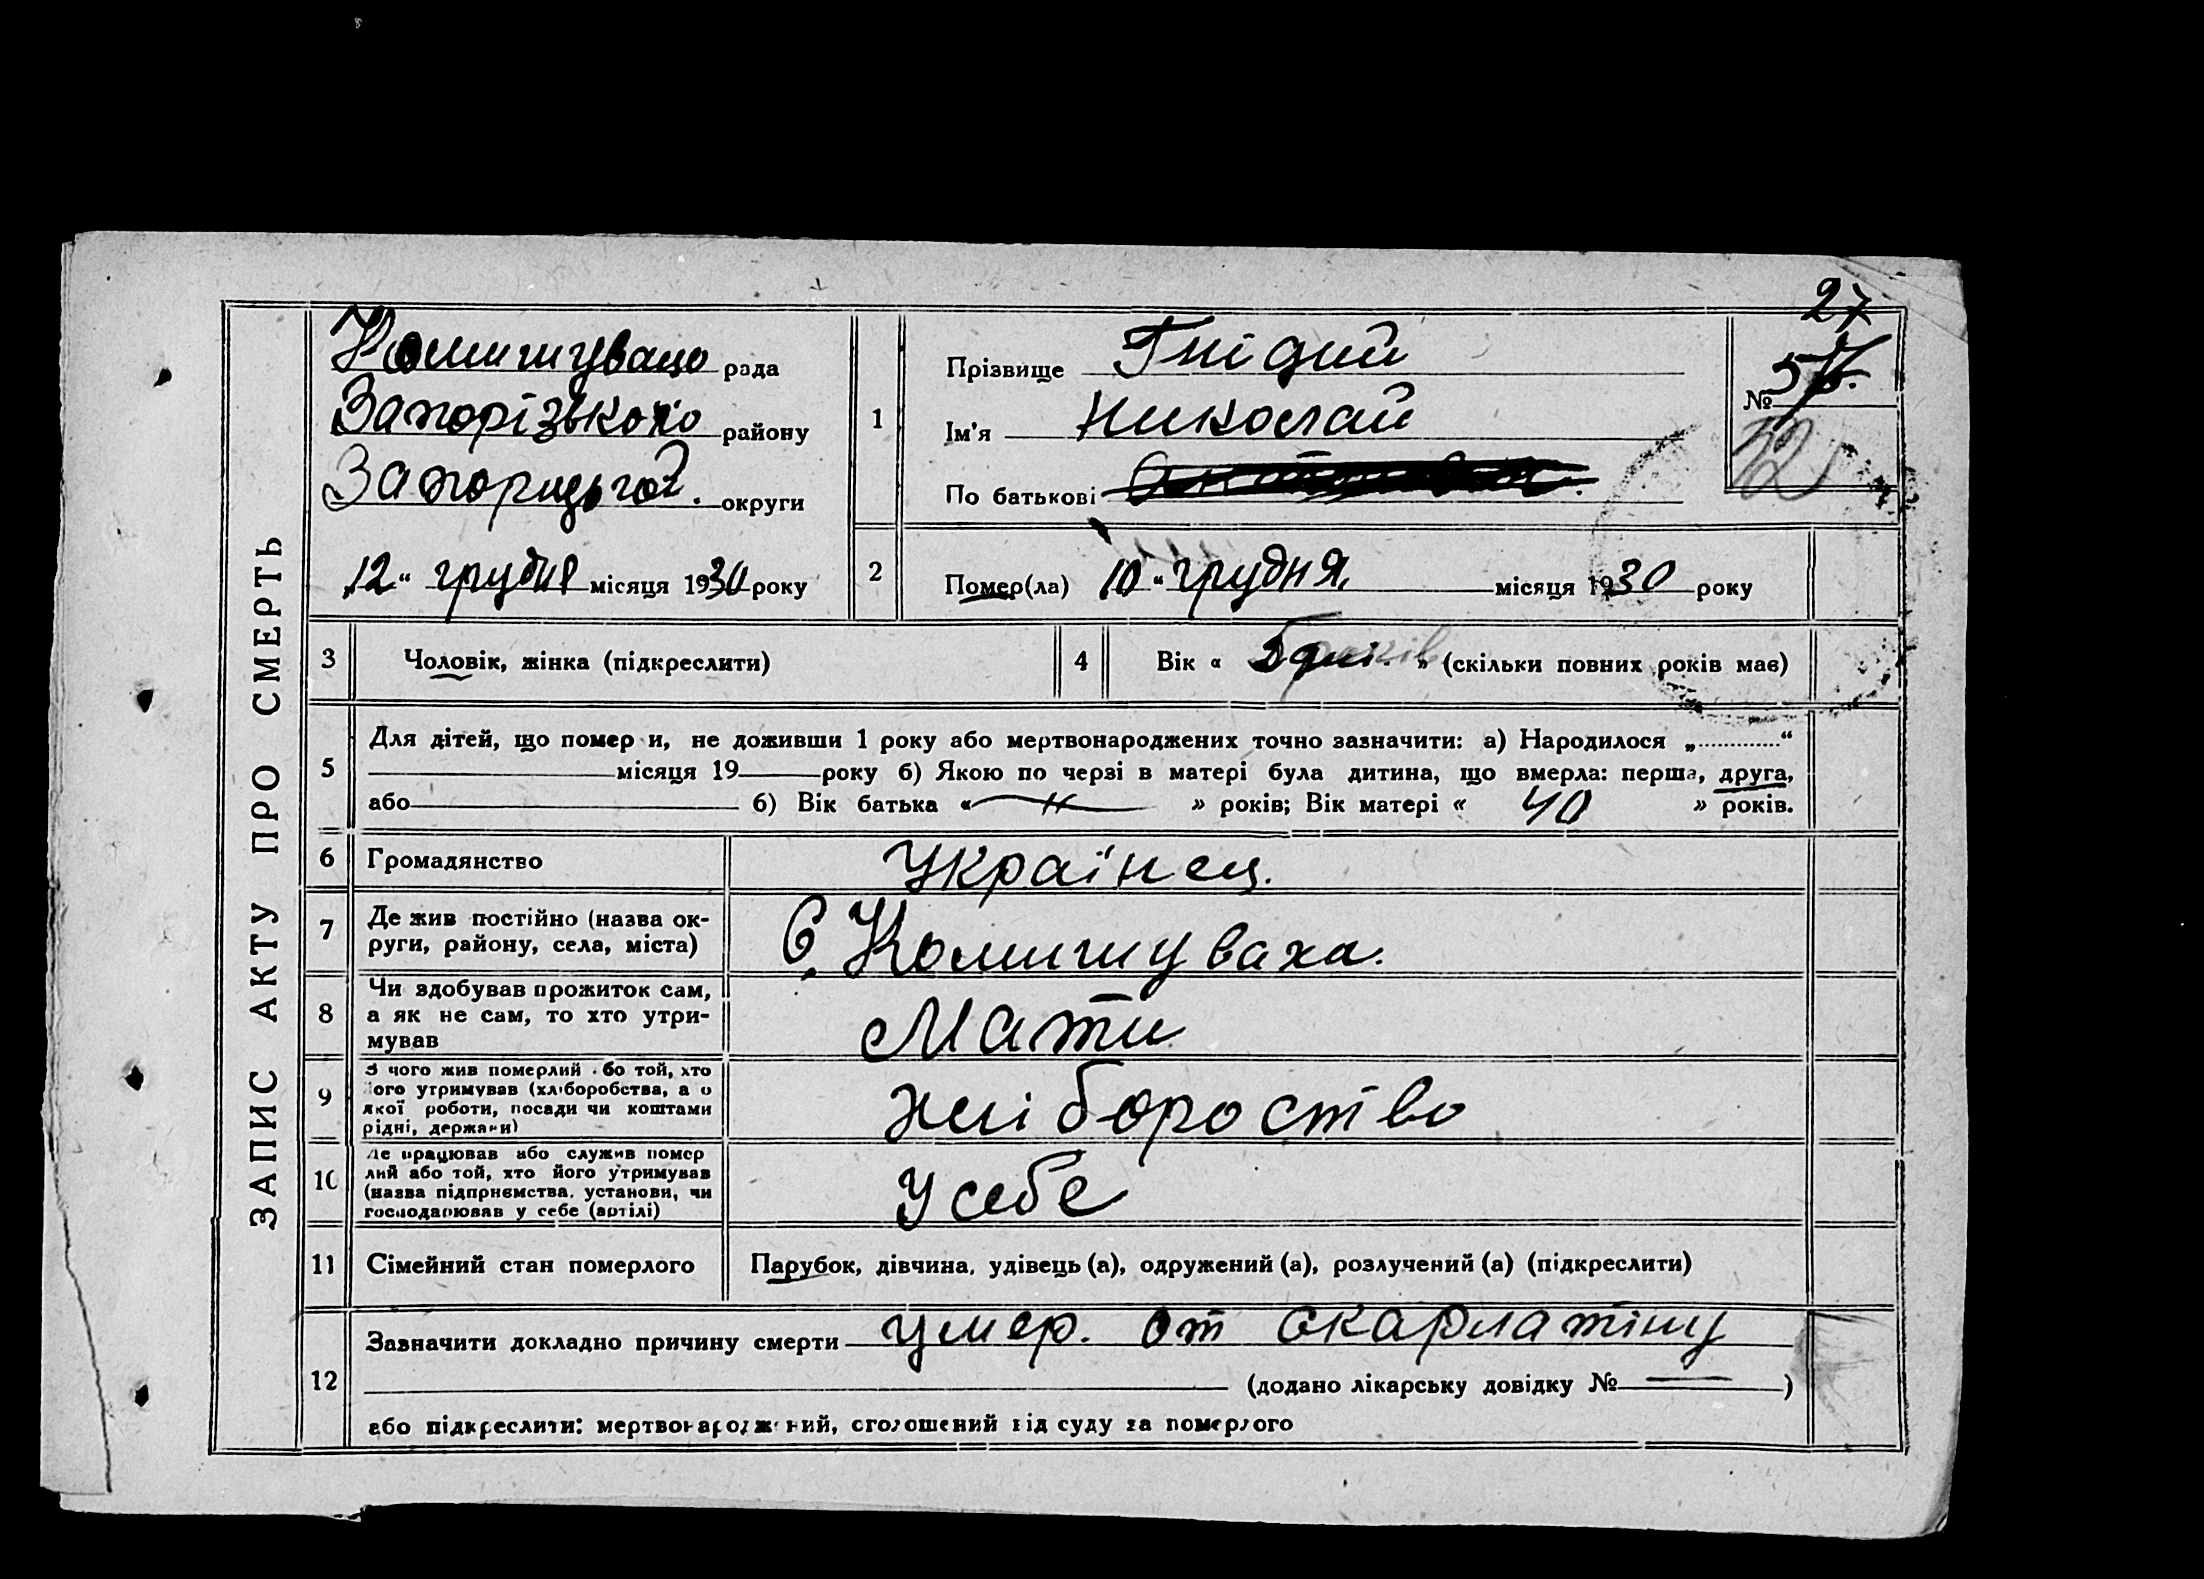 27
ЗАПИС АКТУ ПРО СМЕРТЬ
Комишувацо рада
Запорізького району
округи
12 " грудня місяця 1930 року
1
Прізвище Гнідий
Ім'я Николай
По батькові
№
52
2
Помер(ла) 10 " грудня місяця 1930 року
3
Чоловік, жінка (підкреслити)
4
Вік « 5 » (скільки повних років має)
5
Для дітей, що помер и, не доживши 1 року або мертвонароджених точно зазначити: а) Народилося „ “
місяця 19 року б) Якою по черзі в матері була дитина, що вмерла: перша, друга,
або б) Вік батька « » років; Вік матері « 40 » років.
6
Громадянство
Українец.
7
Де жив постійно (назва ок-
руги, району, села, міста)
С. Комишуваха.
8
Чи здобував прожиток сам,
а як не сам, то хто утри-
мував
Мати
9
З чого жив померлий бо той, хто
ого утримував (хліборобства, а о
якої роботи, посади чи коштами
рідні, держави)
хлібороство
10
Де працював або служив помер
лий або той, хто його утримував
(назва підприємства, установи, чи
господарював у себе (артілі)
У себе
11
Сімейний стан померлого
Парубок, дівчина, удівець (а), одружений (а), розлучений (а) (підкреслити)
12
Зазначити докладно причину смерти умер. от скарлатіну
(додано лікарську довідку № )
або підкреслити: мертвонароджений, оголошений від суду за померлого